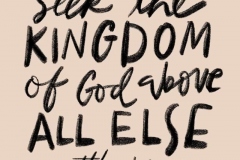 seek the
KINGDOM
of God above
ALL ELSE